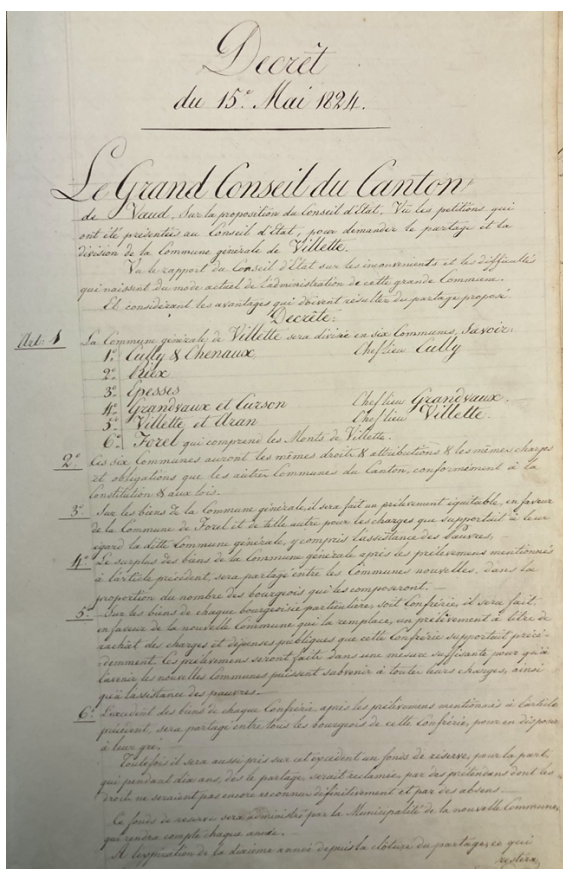 Decrêt
du 15.e Mai 1824.
Le Grand Conseil du Canton
de Vaud, Sur la proposition du Conseil d'Etat, Vu les petitions qui
ont été présentées au Conseil d'Etat, pour demander le partage et la
division de la Commune générale de Villette.
Vu le rapport du Conseil d'Etat sur les inconvénients et les difficultés
qui naissent du mode actuel de l'administration de cette grande Commune.
Et considérant les avantages qui doivent résulter du partage proposé.
Decrête:
Art: 1 La Commune générale de Villette sera divisée en six Communes, Savoir:
1.o Cully & Chenaux Chef lieu Cully
2.o Riex
3.o Epesses
4.o Grandvaux et Curson Chef lieu Grandvaux.
5.o Villette et Aran Chef lieu Villette.
6.o Forel qui comprend les Monts de Villette.
2.e Ces six Communes auront les mêmes droits & attributions & les mêmes charges
et obligations que les autres Communes du Canton, conformément à la
Constitution & aux lois.
3.e Sur les biens de la Commune générale, il sera fait un prélèvement équitable, en faveur
de la Commune de Forel et de telle autre pour les charges que supportait à leur
égard la dite Commune générale, y compris l'assistance des pauvres.
4.e Le surplus des biens de la Commune générale après les prélèvemens mentionnés
à l'article précédent, sera partagé entre les Communes nouvelles, dans la
proportion du nombre des bourgeois qui les composeront.
5.e Sur les biens de chaque bourgeoisie particulière, soit Confrérie, il sera fait
en faveur de la nouvelle Commune qui la remplace, un prélèvement à titre de
rachat des charges et dépenses publiques que cette Confrérie supportait précé-
demment. Ces prélèvemens seront faits dans une mesure suffisante pour qu'à
l'avenir les nouvelles Communes puissent subvenir à toutes leurs charges, ainsi
qu'à l'assistance des pauvres.
6.e L'excédent des biens de chaque Confrérie, après les prélèvemens mentionnés à l'article
précédent, sera partagé entre tous les bourgeois de cette Confrérie, pour en disposer
à leur gré.
Toutefois il sera aussi pris sur cet excédent un fonds de réserve, pour la part
qui pendant dix ans, dès le partage, serait réclamée, par des prétendans dont les
droits ne seraient pas encore reconnus définitivement et par des absens.
Ce fonds de réserve sera administré par la Municipalité de la nouvelle Commune,
qui rendra compte chaque année.
A l'expiration de la dixième année depuis la clôture du partage, ce qui
restera